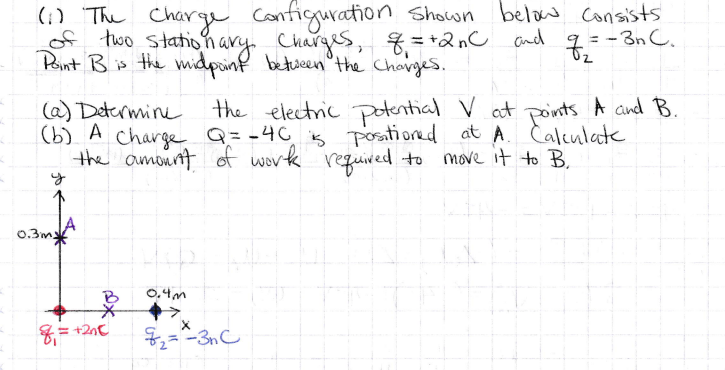 (i) The Charge Configuration Shown below Consists
of two Stationary Charges, q₁ = +2nC and q₂ = -3nC.
Point B is the midpoint between the Charges.
(a) Determine the electric potential V at points A and B.
(b) A Charge Q = -4C is positioned at A. Calculate
the amount of work required to move it to B.
y
A
0.3m
B 0.4m
x
q₁ = +2nC q₂ = -3nC